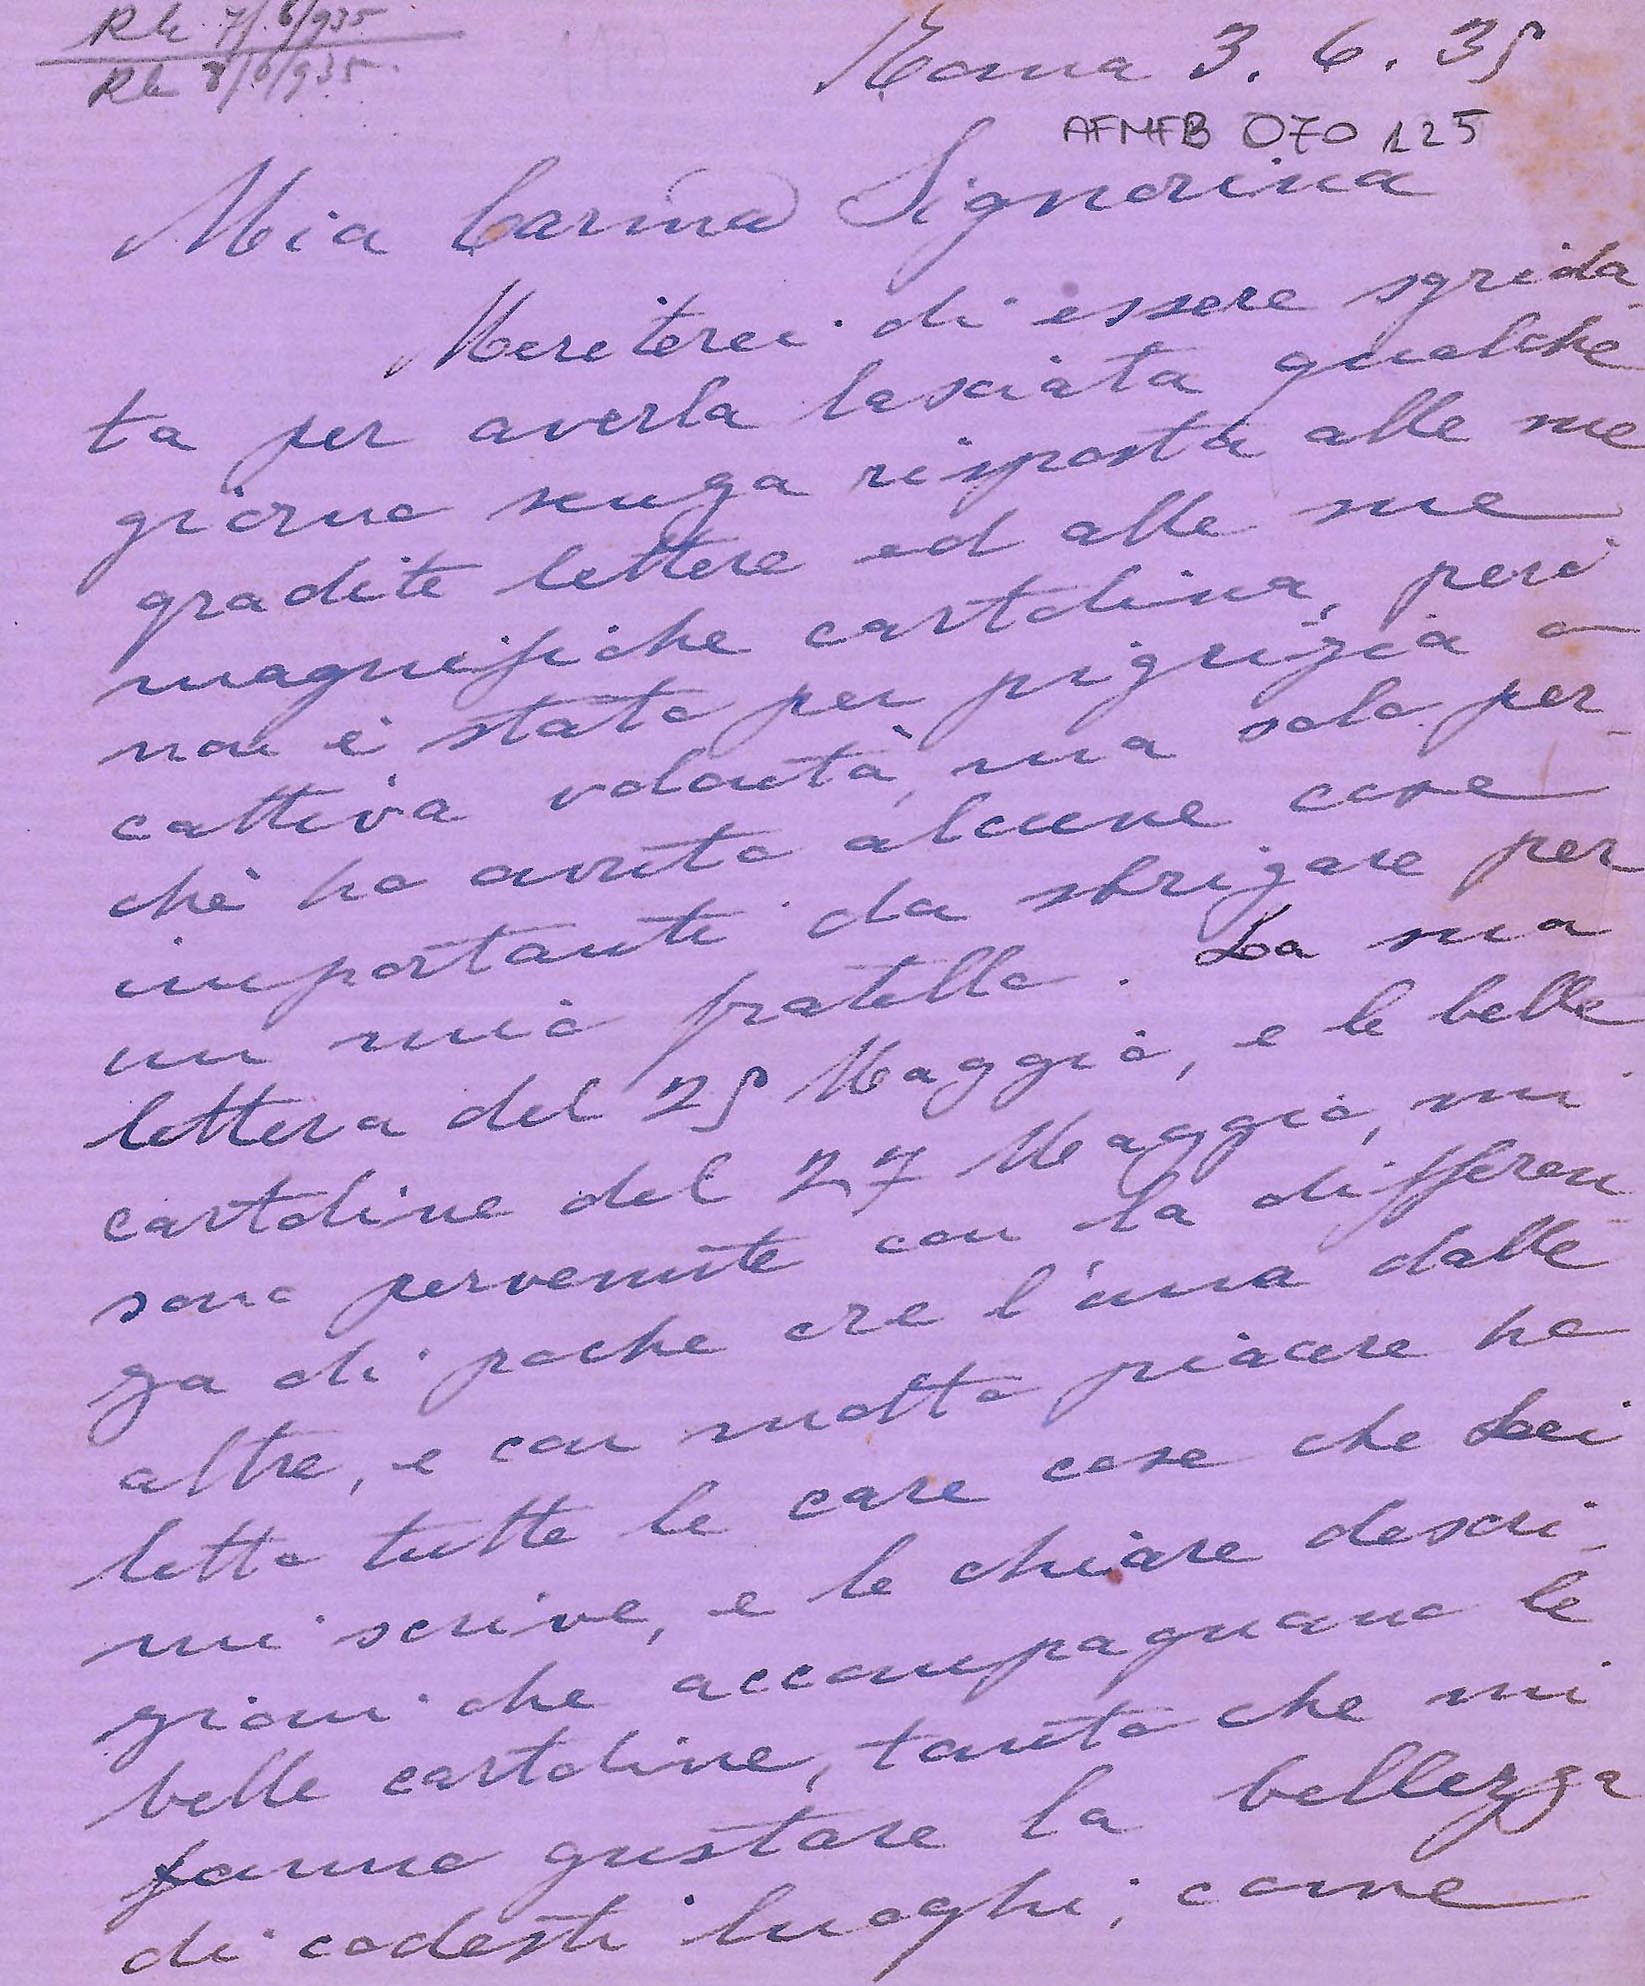 R le 7/6/935
R le 8/6/935.
Roma 3. 6. 35
AFMFB 070 125
Mia Carina Signorina
Meriterei di essere sgrida-
ta per averla lasciata qualche
giorno senza risposta alle sue
gradite lettere ed alle sue
magnifiche cartoline, però
non è stato per pigrizia o
cattiva volontà, ma solo per-
chè ho avuto alcune cose
importanti da sbrigare per
un mio fratello. La sua
lettera del 25 Maggio, e le belle
cartoline del 27 Maggio, mi
sono pervenute con la differen-
za di poche ore l'una dalle
altre, e con molto piacere ho
letto tutte le care cose che Lei
mi scrive, e le chiare descri-
zioni che accompagnano le
belle cartoline, tanto che mi
fanno gustare la bellezza
di codesti luoghi; come